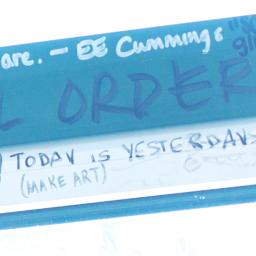 are. – EE Cummings
L ORDER
TODAY IS YESTERDAY
(MAKE ART)